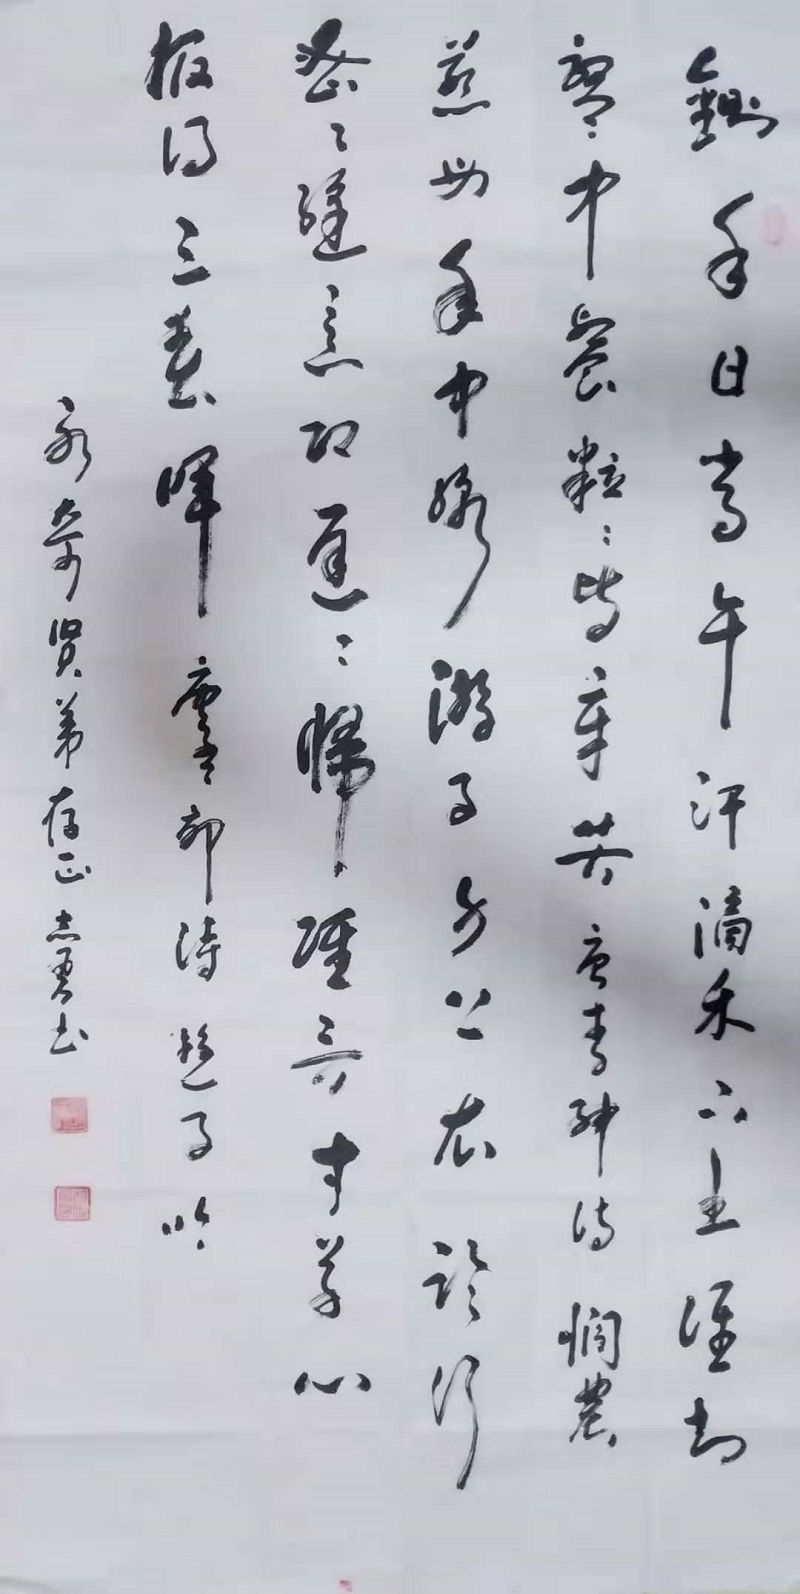 鋤禾日當午汗滴禾下土谁知
盤中餐粒々皆辛苦唐李绅诗憫農
慈母手中线游子身上衣临行
密々缝意恐遲々歸谁言寸草心
报得三春晖唐孟郊诗遊子吟
永奇贤弟存正志勇书